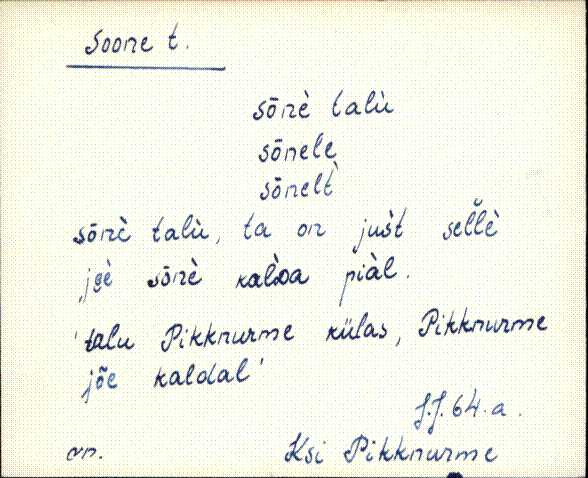 Soone t.
sōnè talù
sōnele
sōnelt̀
sōnè talù, ta on just̀ sel̆l̆è
jẹè sōnè kalᴅa piàl.
'talu Pikknurme külas, Pikknurme
jõe kaldal'
J.J. 64.a.
vn. Ksi Pikknurme